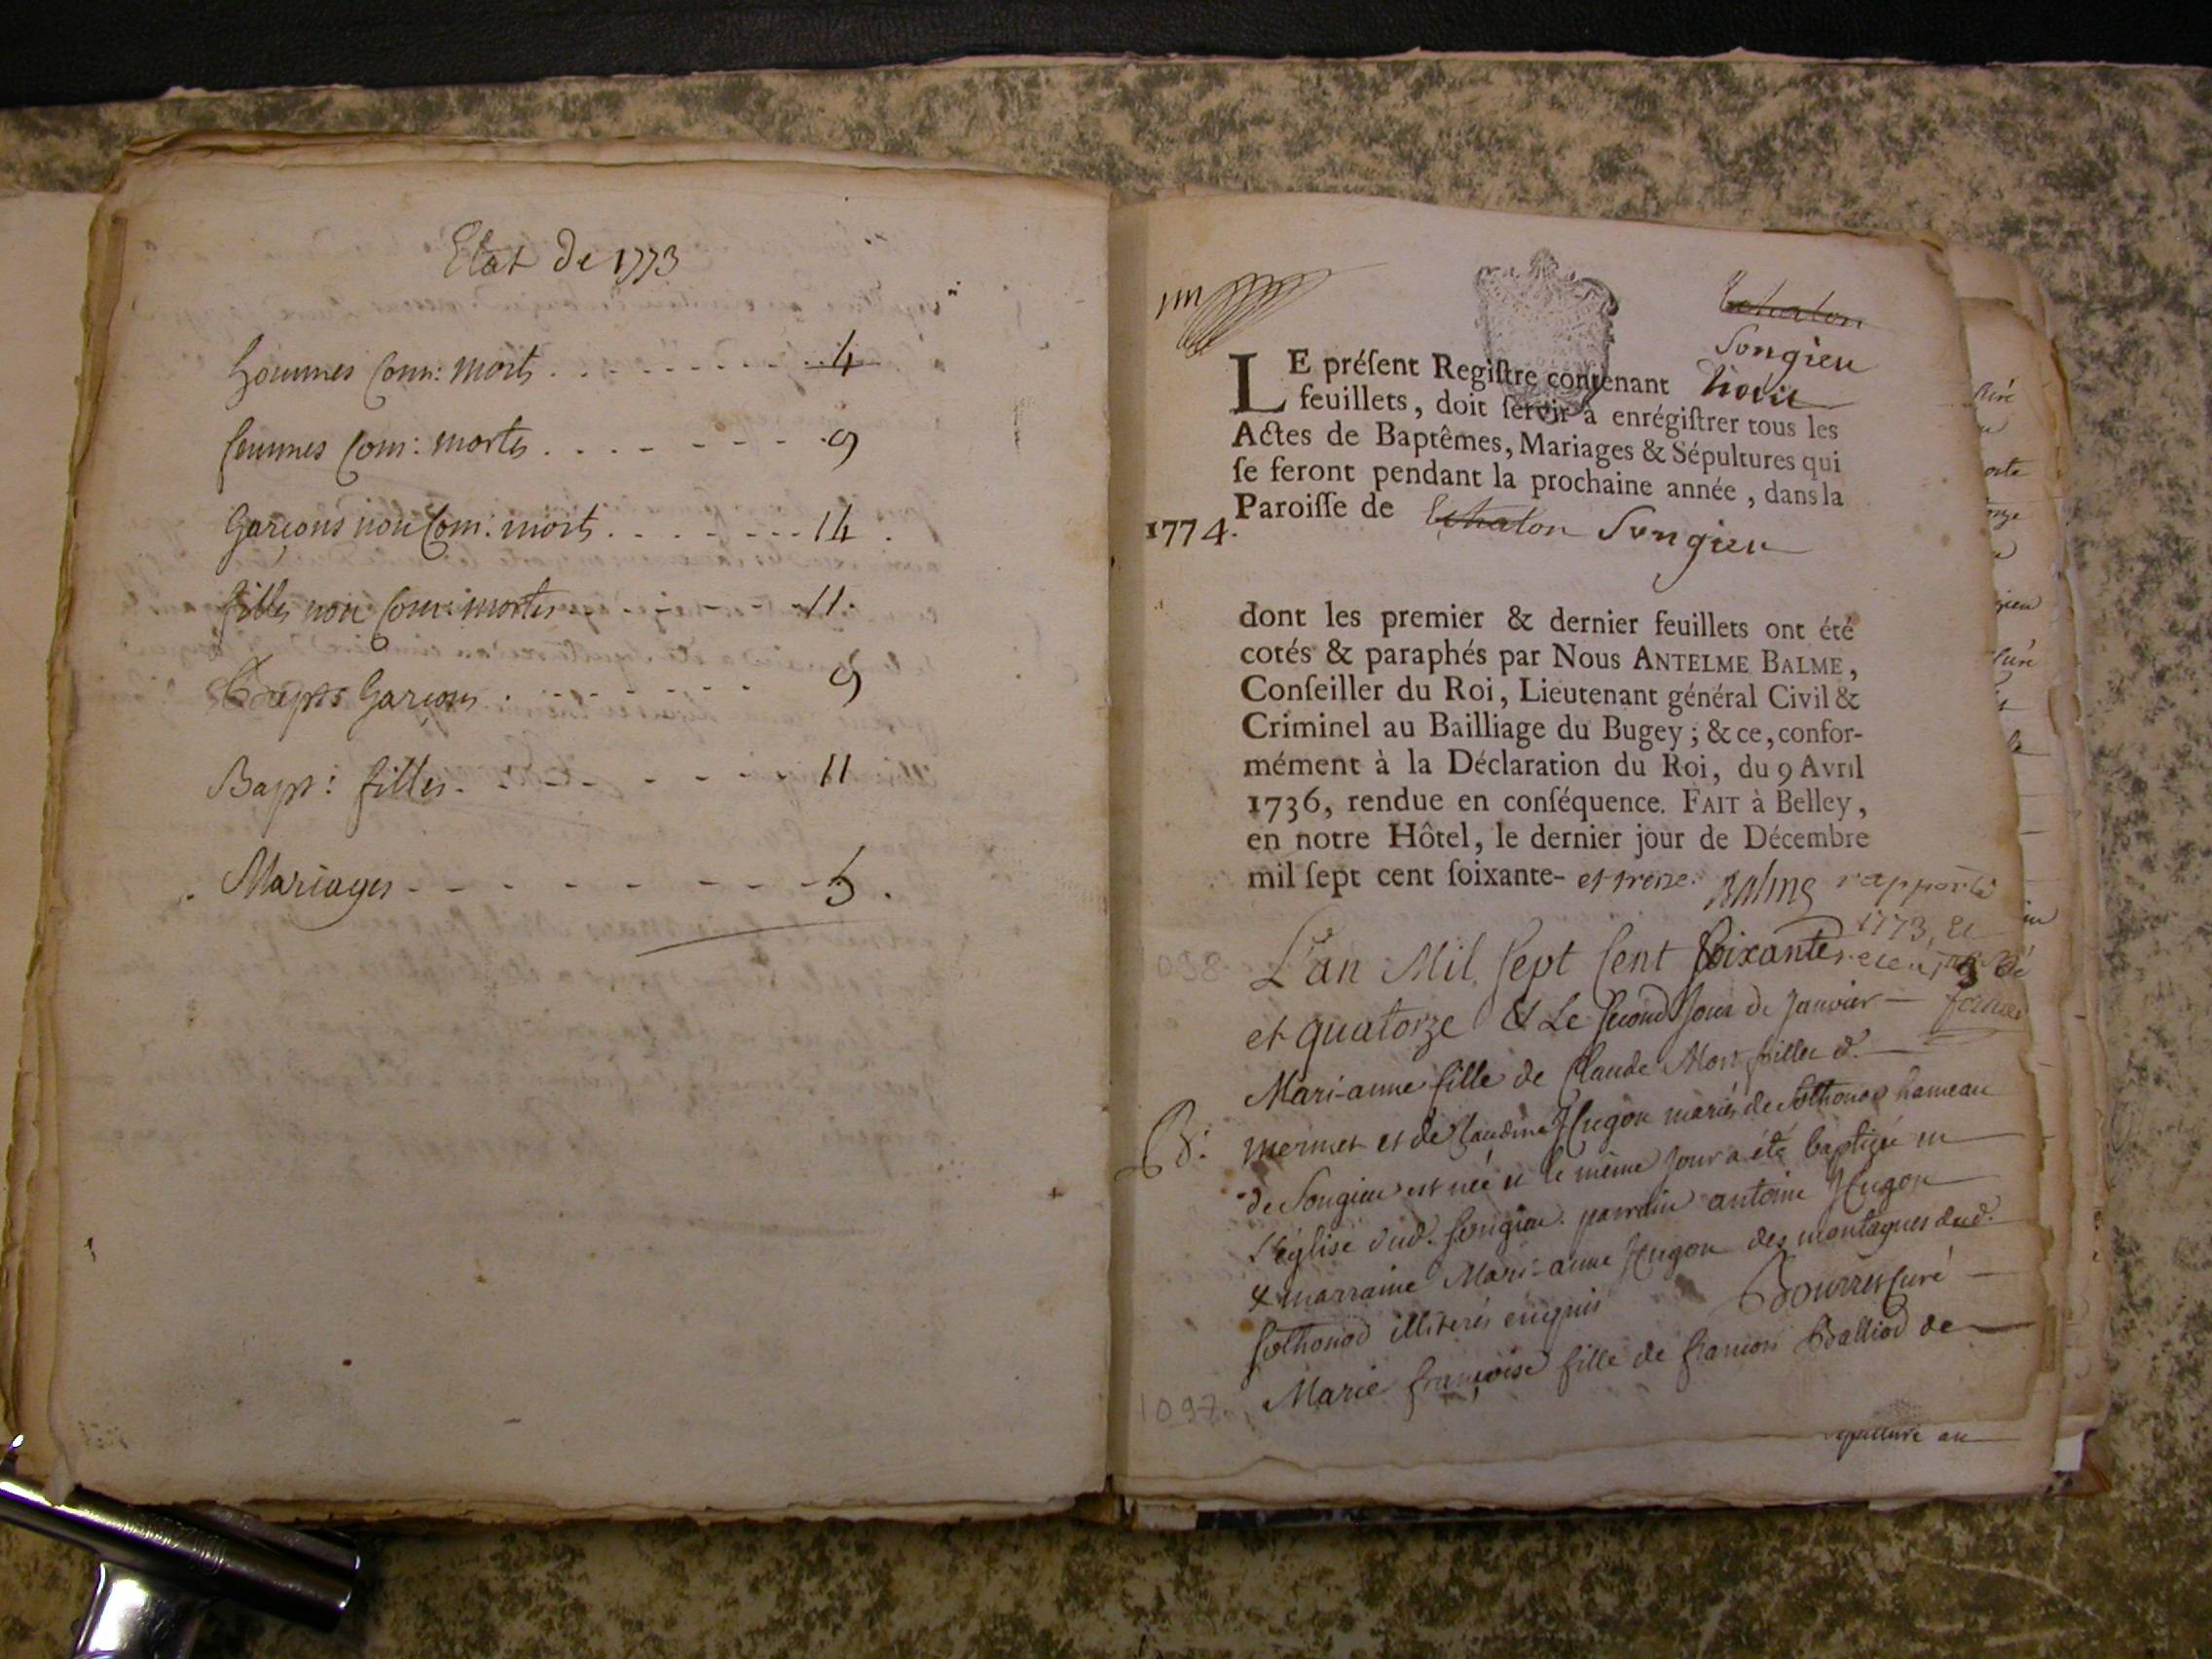 Etat De 1773
hommes Com: morts . . . . . . . . . 4
femmes Com: mortes . . . - - - - . 9
Garçons non Com: morts . . . . - - - 14 .
filles non Com: mortes - . - . - - - 11.
Bapts Garçons . . - - - - - - 9
Bapt: filles . - - - - - - - 11
Mariages - - - - - - - - - 5 .
Echalon
Songieu
LE préſent Regiſtre contenant
feuillets, doit ſervir à enrégiſtrer tous les
Actes de Baptêmes, Mariages & Sépultures qui
ſe feront pendant la prochaine année, dans la
Paroiſſe de Echalon Songieu
1774.
dont les premier & dernier feuillets ont été
cotés & paraphés par Nous ANTELME BALME,
Conſeiller du Roi, Lieutenant général Civil &
Criminel au Bailliage du Bugey; & ce, confor-
mément à la Déclaration du Roi, du 9 Avril
1736, rendue en conſéquence. FAIT à Belley,
en notre Hôtel, le dernier jour de Décembre
mil ſept cent ſoixante- et treize. Balme rapporté
1773, et
L'an Mil Sept Cent Soixante
et quatorze & Le Second Jour de Janvier —
Mari-anne fille de Claude Monfiller d. —
B: mermet et de Claudine Hugon mariés de Sothonod hameau
de Songieu est née et le même jour a été baptizée en —
l'église dud. Songieu. parrain antoine Hugon
& marraine Mari-anne Hugon des montagnes dud.
Sothonod illiterés enquis Bourret Curé —
1097. Marie françoise fille de françois Balliod de —
sepulture au